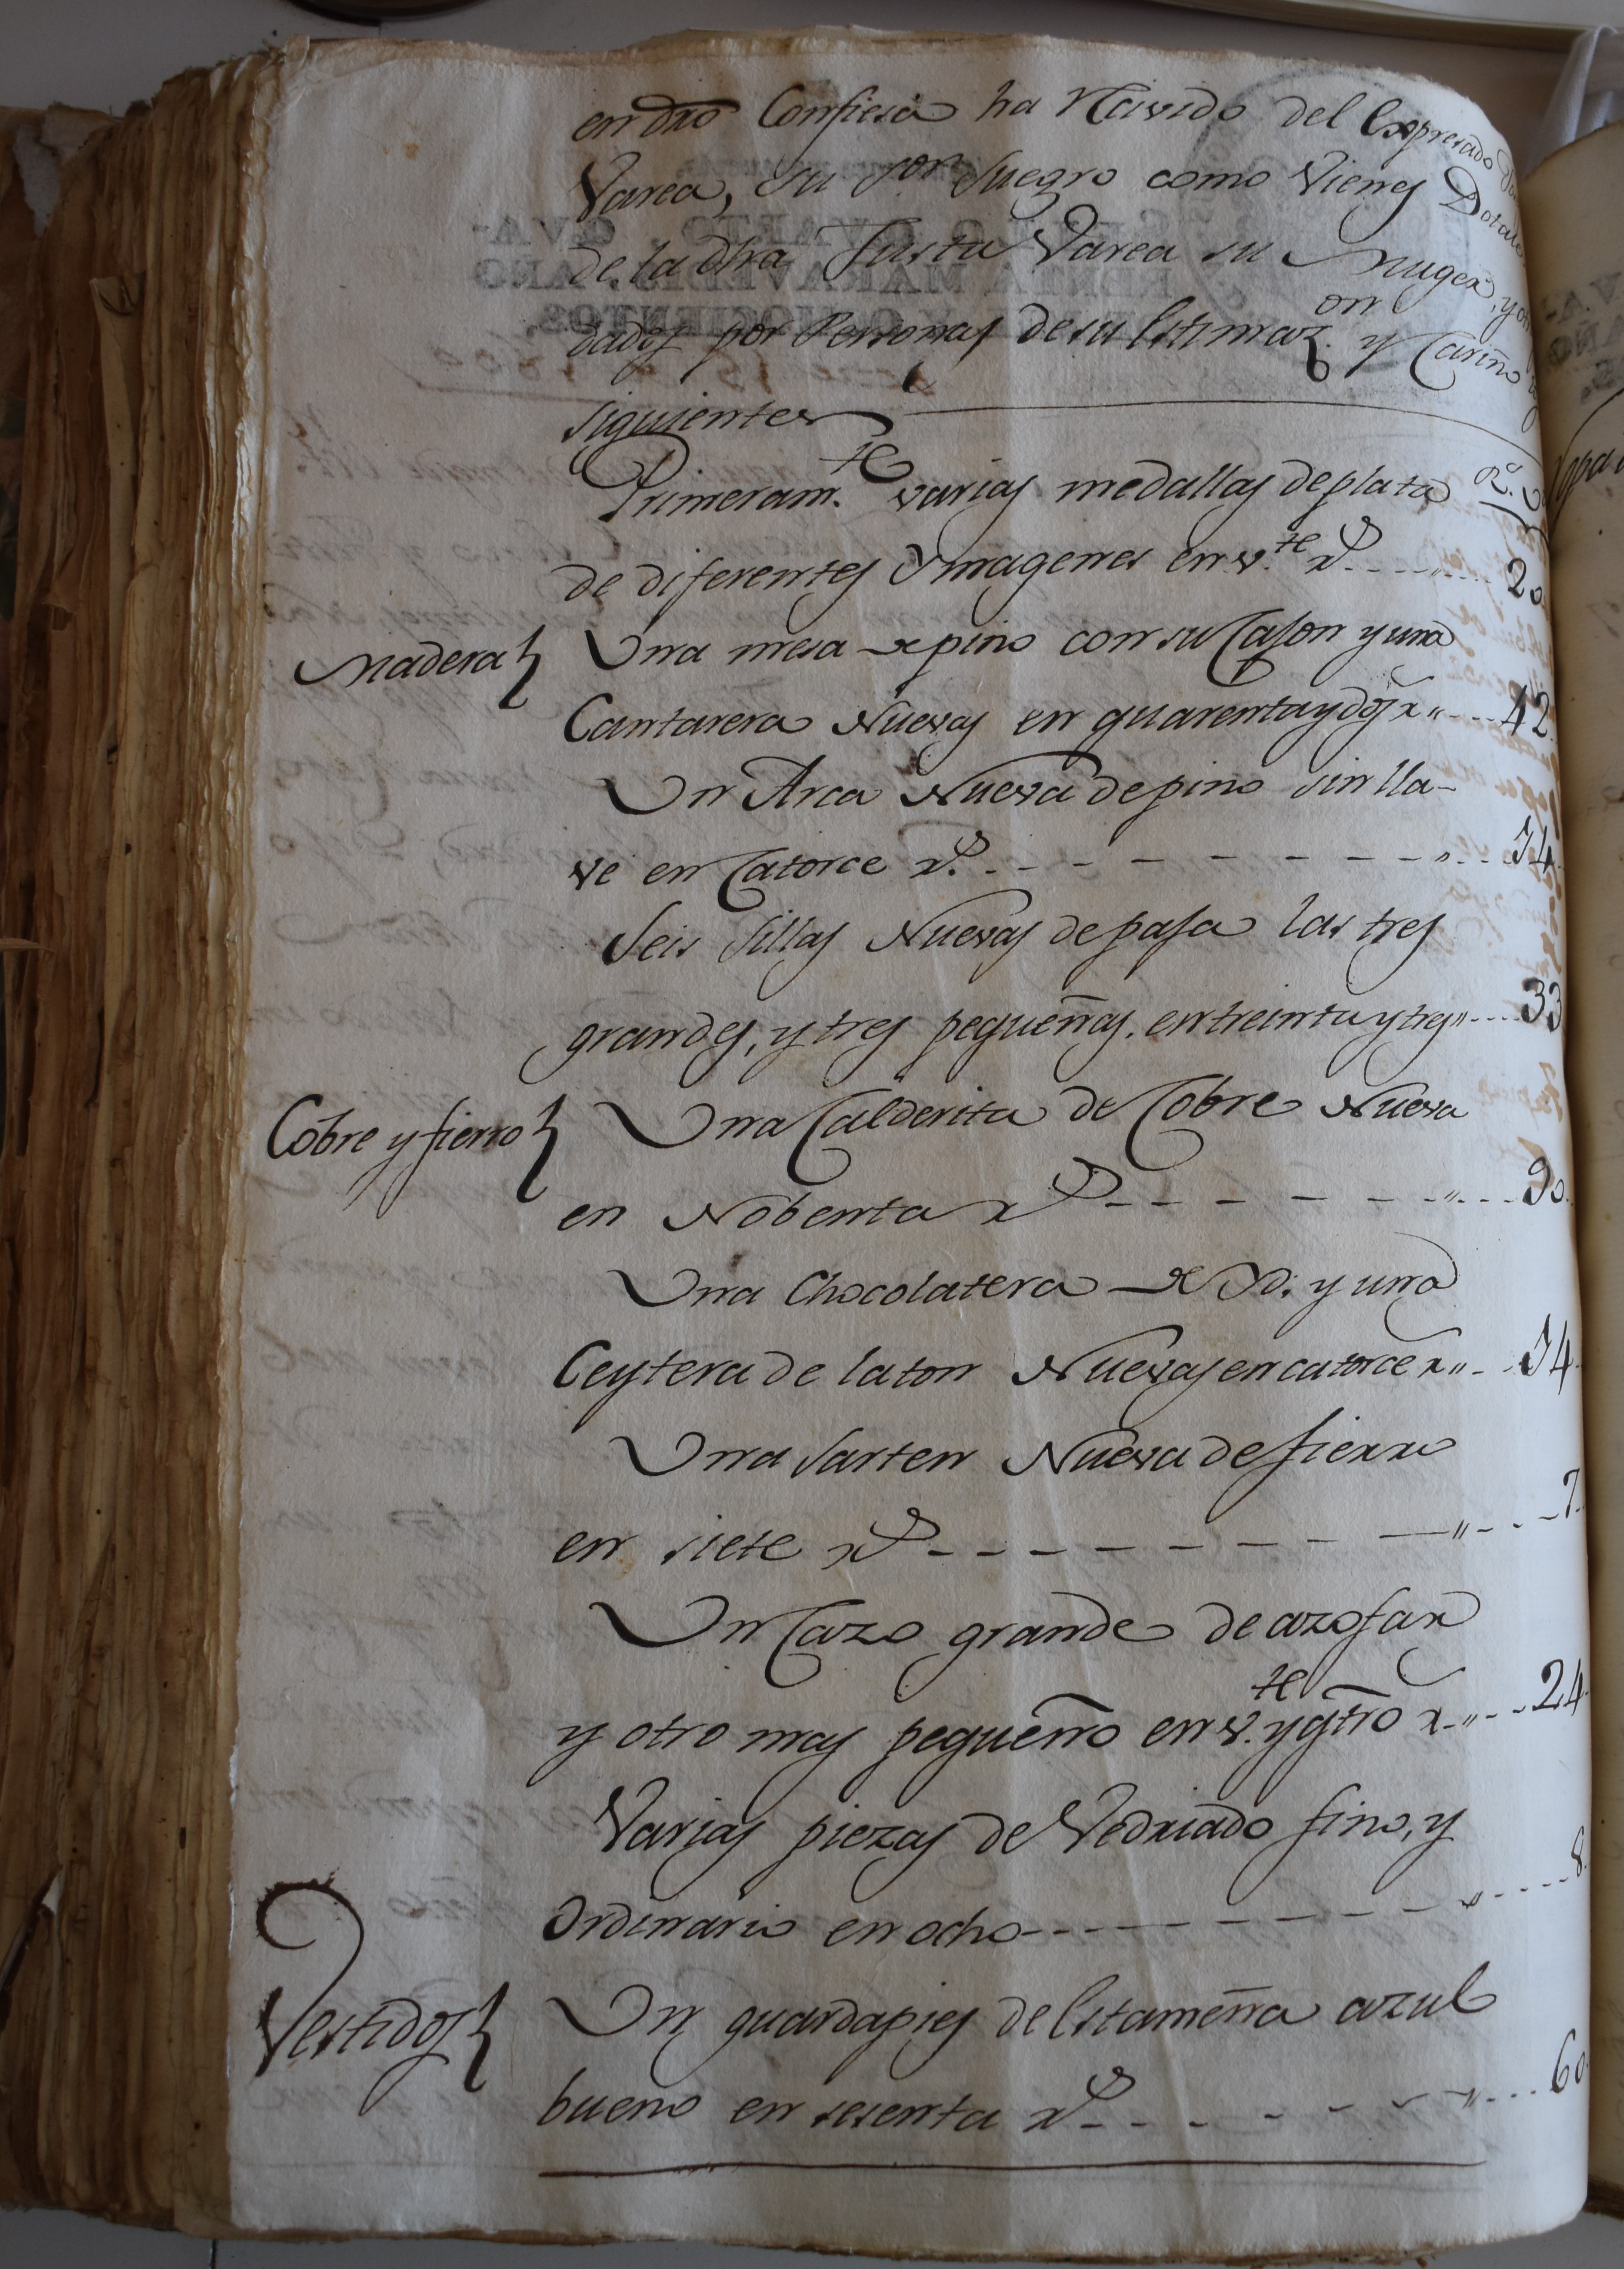 en dho Confiesa ha Rcivido del Expresado
Varea, su Sor Suegro como Vienes Dotales
de la dha Justa Varea su Muger, y
dados por Personas de su Estimazon y Cariño
siguientes
Primeramte varias medallas de plata Rs
de diferentes Ymagenes en vte rs 20
Madera Una mesa de pino con su Cajon y una
Cantarera Nuevas en quarenta y dos rs 42
Un Arca Nueva de pino sin lla-
ve en Catorce rs 14
Seis sillas Nuevas de paja las tres
grandes, y tres pequeñas, en treinta y tres 33
Cobre y fierro Una Calderita de Cobre Nueva
en Nobenta rs 90
Una Chocolatera de Yd. y una
Ceytera de laton Nuevas en catorce rs 14
Una Sarten Nueva de fierro
en siete rs 7
Un Cazo grande de azofar
y otro mas pequeño en vte y qtro rs 24
Varias piezas de Vedriado fino, y
Ordinario en ocho 8
Vestidos Un guardapies de Estameña azul
bueno en sesenta rs 60